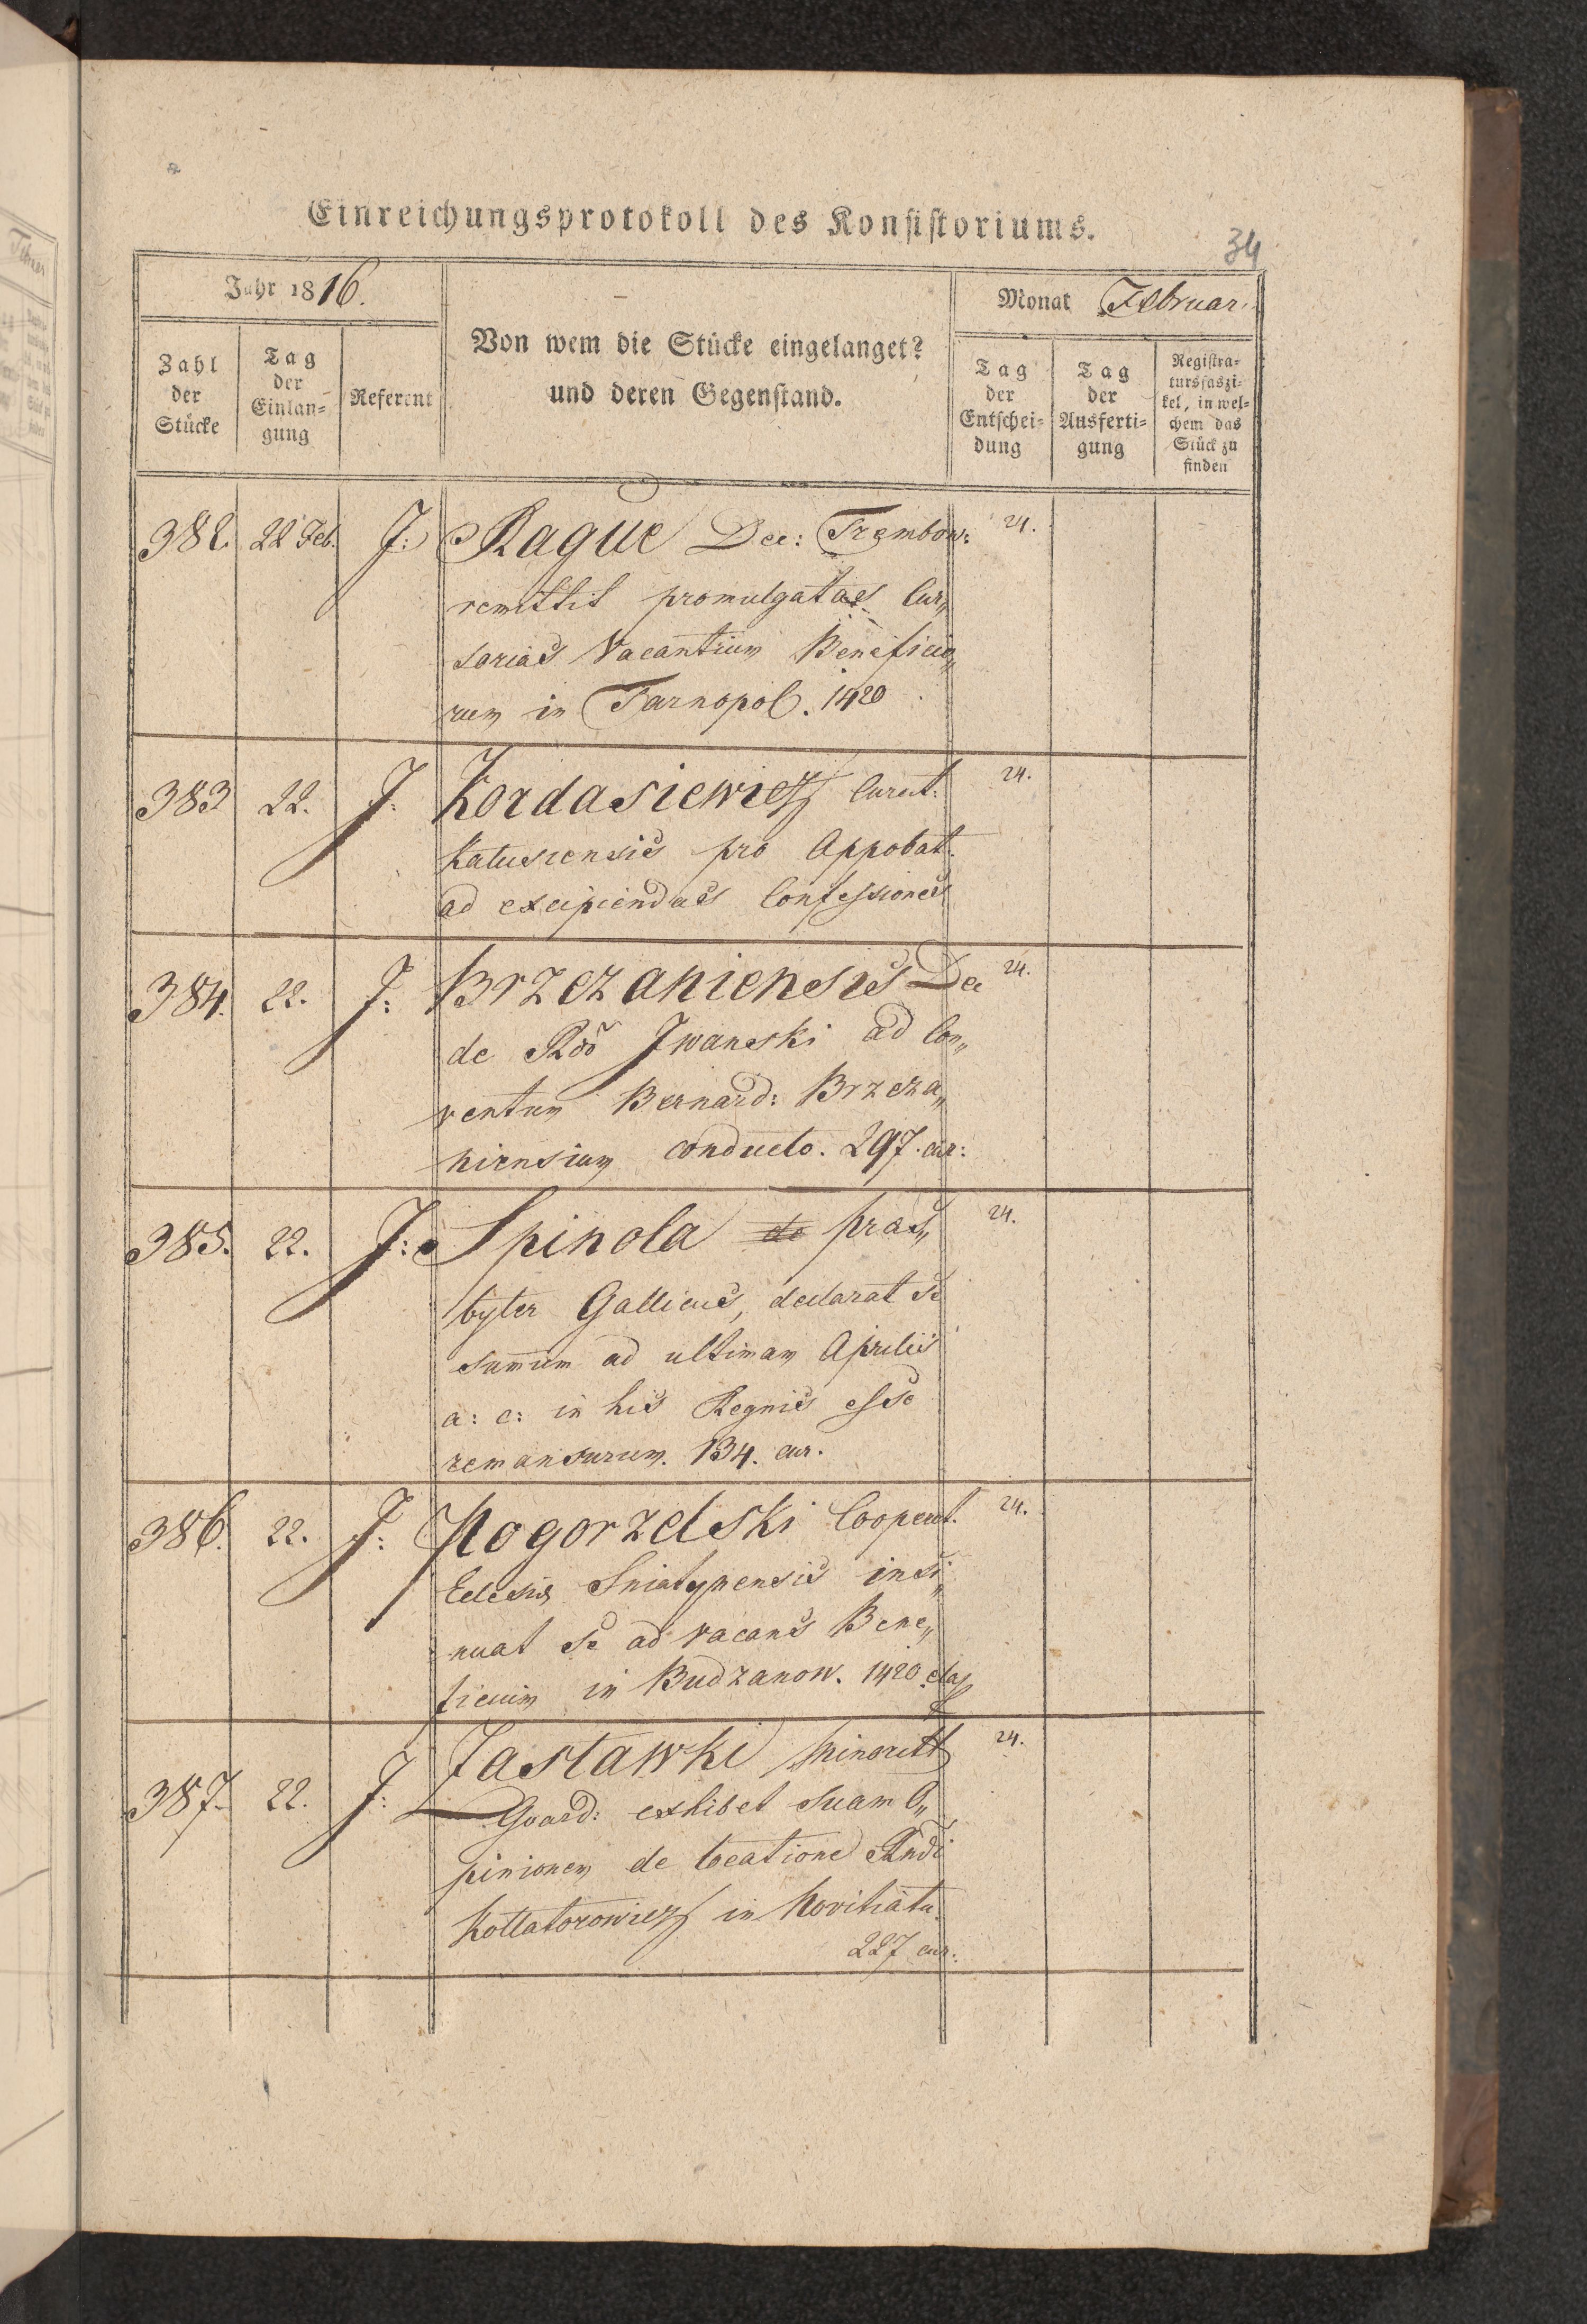 Einreichungsprotokoll des Konsistoriums.
34
Jahr 1816.
Monat Februar.
Von wem die Stücke eingelanget?
und deren Gegenstand.
Zahl
der
Stücke
Tag
der
Einlan=
gung
Referent
Tag
der
Entschei=
dung
Tag
der
Ausferti=
gung
Registra=
tursfaszi=
kel, in wel=
chem das
Stück zu
finden
382. 22 Feb. J: Rague Dec: Trembow: 24.
remittit promulgatas Cur„
sorias Vacantium Beneficio„
rum in Tarnopol. 1420
383 22. J: Kordasiewicz Curat. 24.
Kalusiensis pro Appobat.
ad excipiendas Confessiones
384. 22. J: Brzezaniensis Dec 24.
de Rdo Iwanski ad Con„
ventum Bernard: Brzeza„
niensium conducto. 297. cur:
385. 22. J: Spinola de praes„ 24.
byter Gallicus, declarat se
summum ad ultimam Aprilis
a: c: in his Regnis esse
remansurum. 134. cur.
386. 22. J: Pogorzelski Cooperat. 24.
Eclesiae Sniatynensis insi„
nuat se ad vacans Bene„
ficium in Budzanow. 1420
387. 22. J: Zaslawki Minorit 24.
Guard: exhibet suam O„
pinionem de locatione Rndi
Kollatorowicz in Novitiatu.
227 cur: